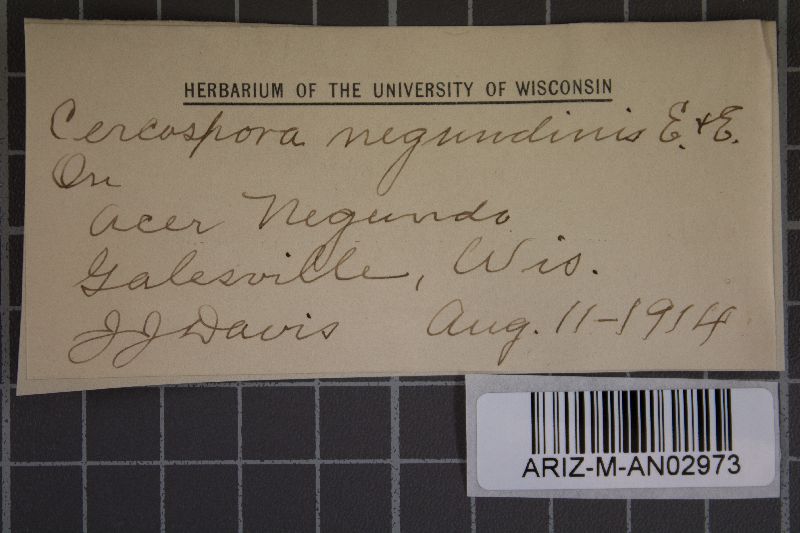 HERBARIUM OF THE UNIVERSITY OF WISCONSIN
Cercospora negundinis E. & E.
On
Acer Negundo
Galesville, Wis.
J J Davis Aug. 11-1914
ARIZ-M-AN02973